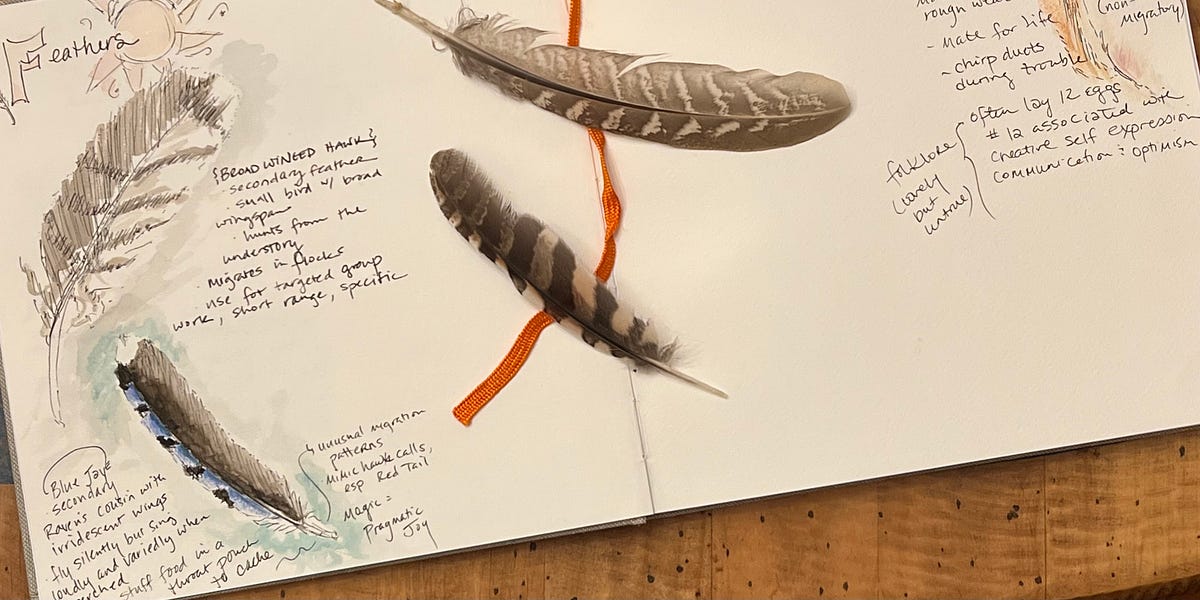 Feathers
{BROAD WINGED HAWK}
· secondary feather
· small bird w/ broad
wingspan
· hunts from the
understory
· Migrates in flocks
· use for targeted group
work, short range, specific
Blue Jay
secondary
Raven's cousin with
irridescent wings
fly silently but sing
loudly and variedly when
perched
stuff food in a
throat pouch
to cache
unusual migration
patterns
Mimic hawk calls,
esp Red Tail
Magic =
Pragmatic
Joy
rough
- Mate for life
- chirp duets
during trouble
(non-
migratory)
often lay 12 eggs
# 12 associated with
creative self expression
communication & optimism
folklore
(lovely
but
untrue)